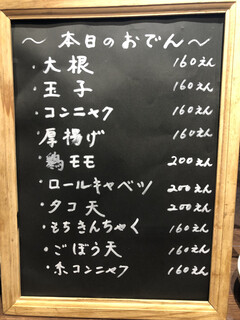 ～本日のおでん～
・大根 160えん
・玉子 160えん
・コンニャク 160えん
厚揚げ 160えん
・鶏モモ 200えん
・ロールキャベツ 200えん
・タコ天 200えん
・もちきんちゃく 160えん
・ごぼう天 160えん
・糸コンニャク 160えん